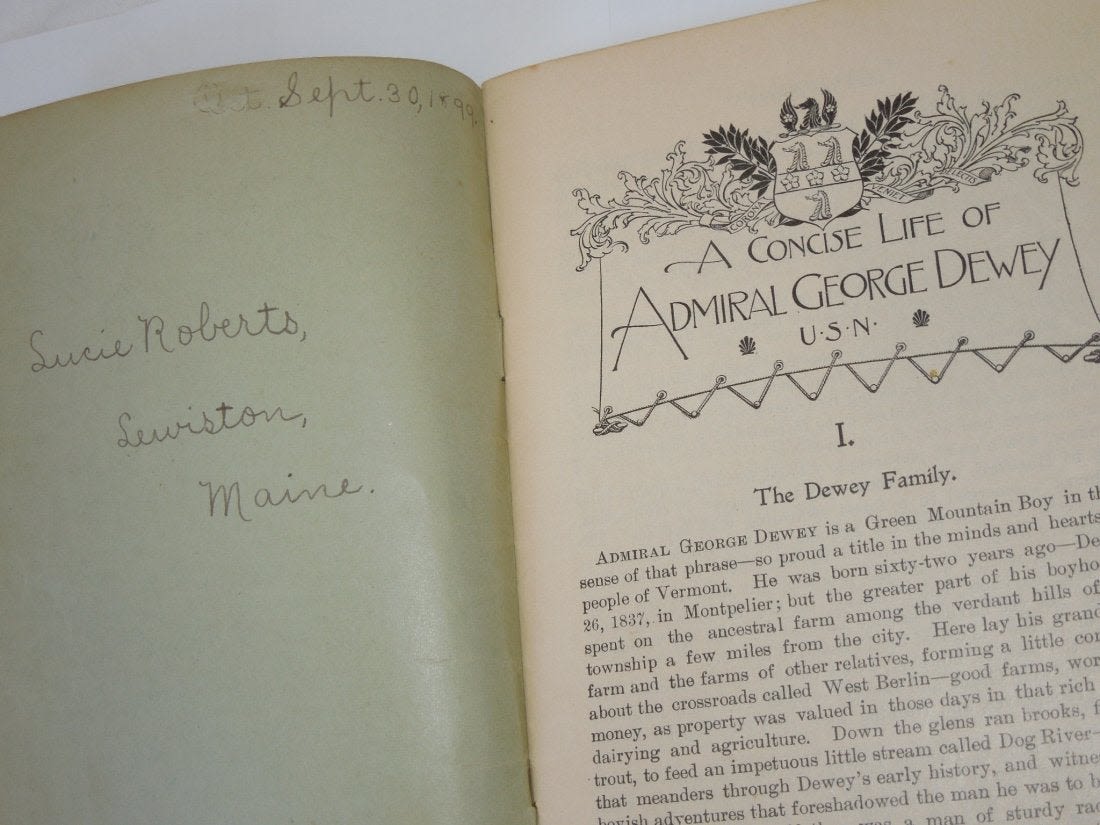 Sept. 30, 1899.
Lucie Roberts,
Lewiston,
Maine.
A CONCISE LIFE OF
ADMIRAL GEORGE DEWEY
U·S·N·
I.
The Dewey Family.
ADMIRAL GEORGE DEWEY is a Green Mountain Boy in th
sense of that phrase—so proud a title in the minds and hearts
people of Vermont. He was born sixty-two years ago—De
26, 1837, in Montpelier; but the greater part of his boyho
spent on the ancestral farm among the verdant hills of
township a few miles from the city. Here lay his grand
farm and the farms of other relatives, forming a little com
about the crossroads called West Berlin—good farms, wor
money, as property was valued in those days in that rich
dairying and agriculture. Down the glens ran brooks, f
trout, to feed an impetuous little stream called Dog River—
that meanders through Dewey's early history, and witne
boyish adventures that foreshadowed the man he was to b
was a man of sturdy rac